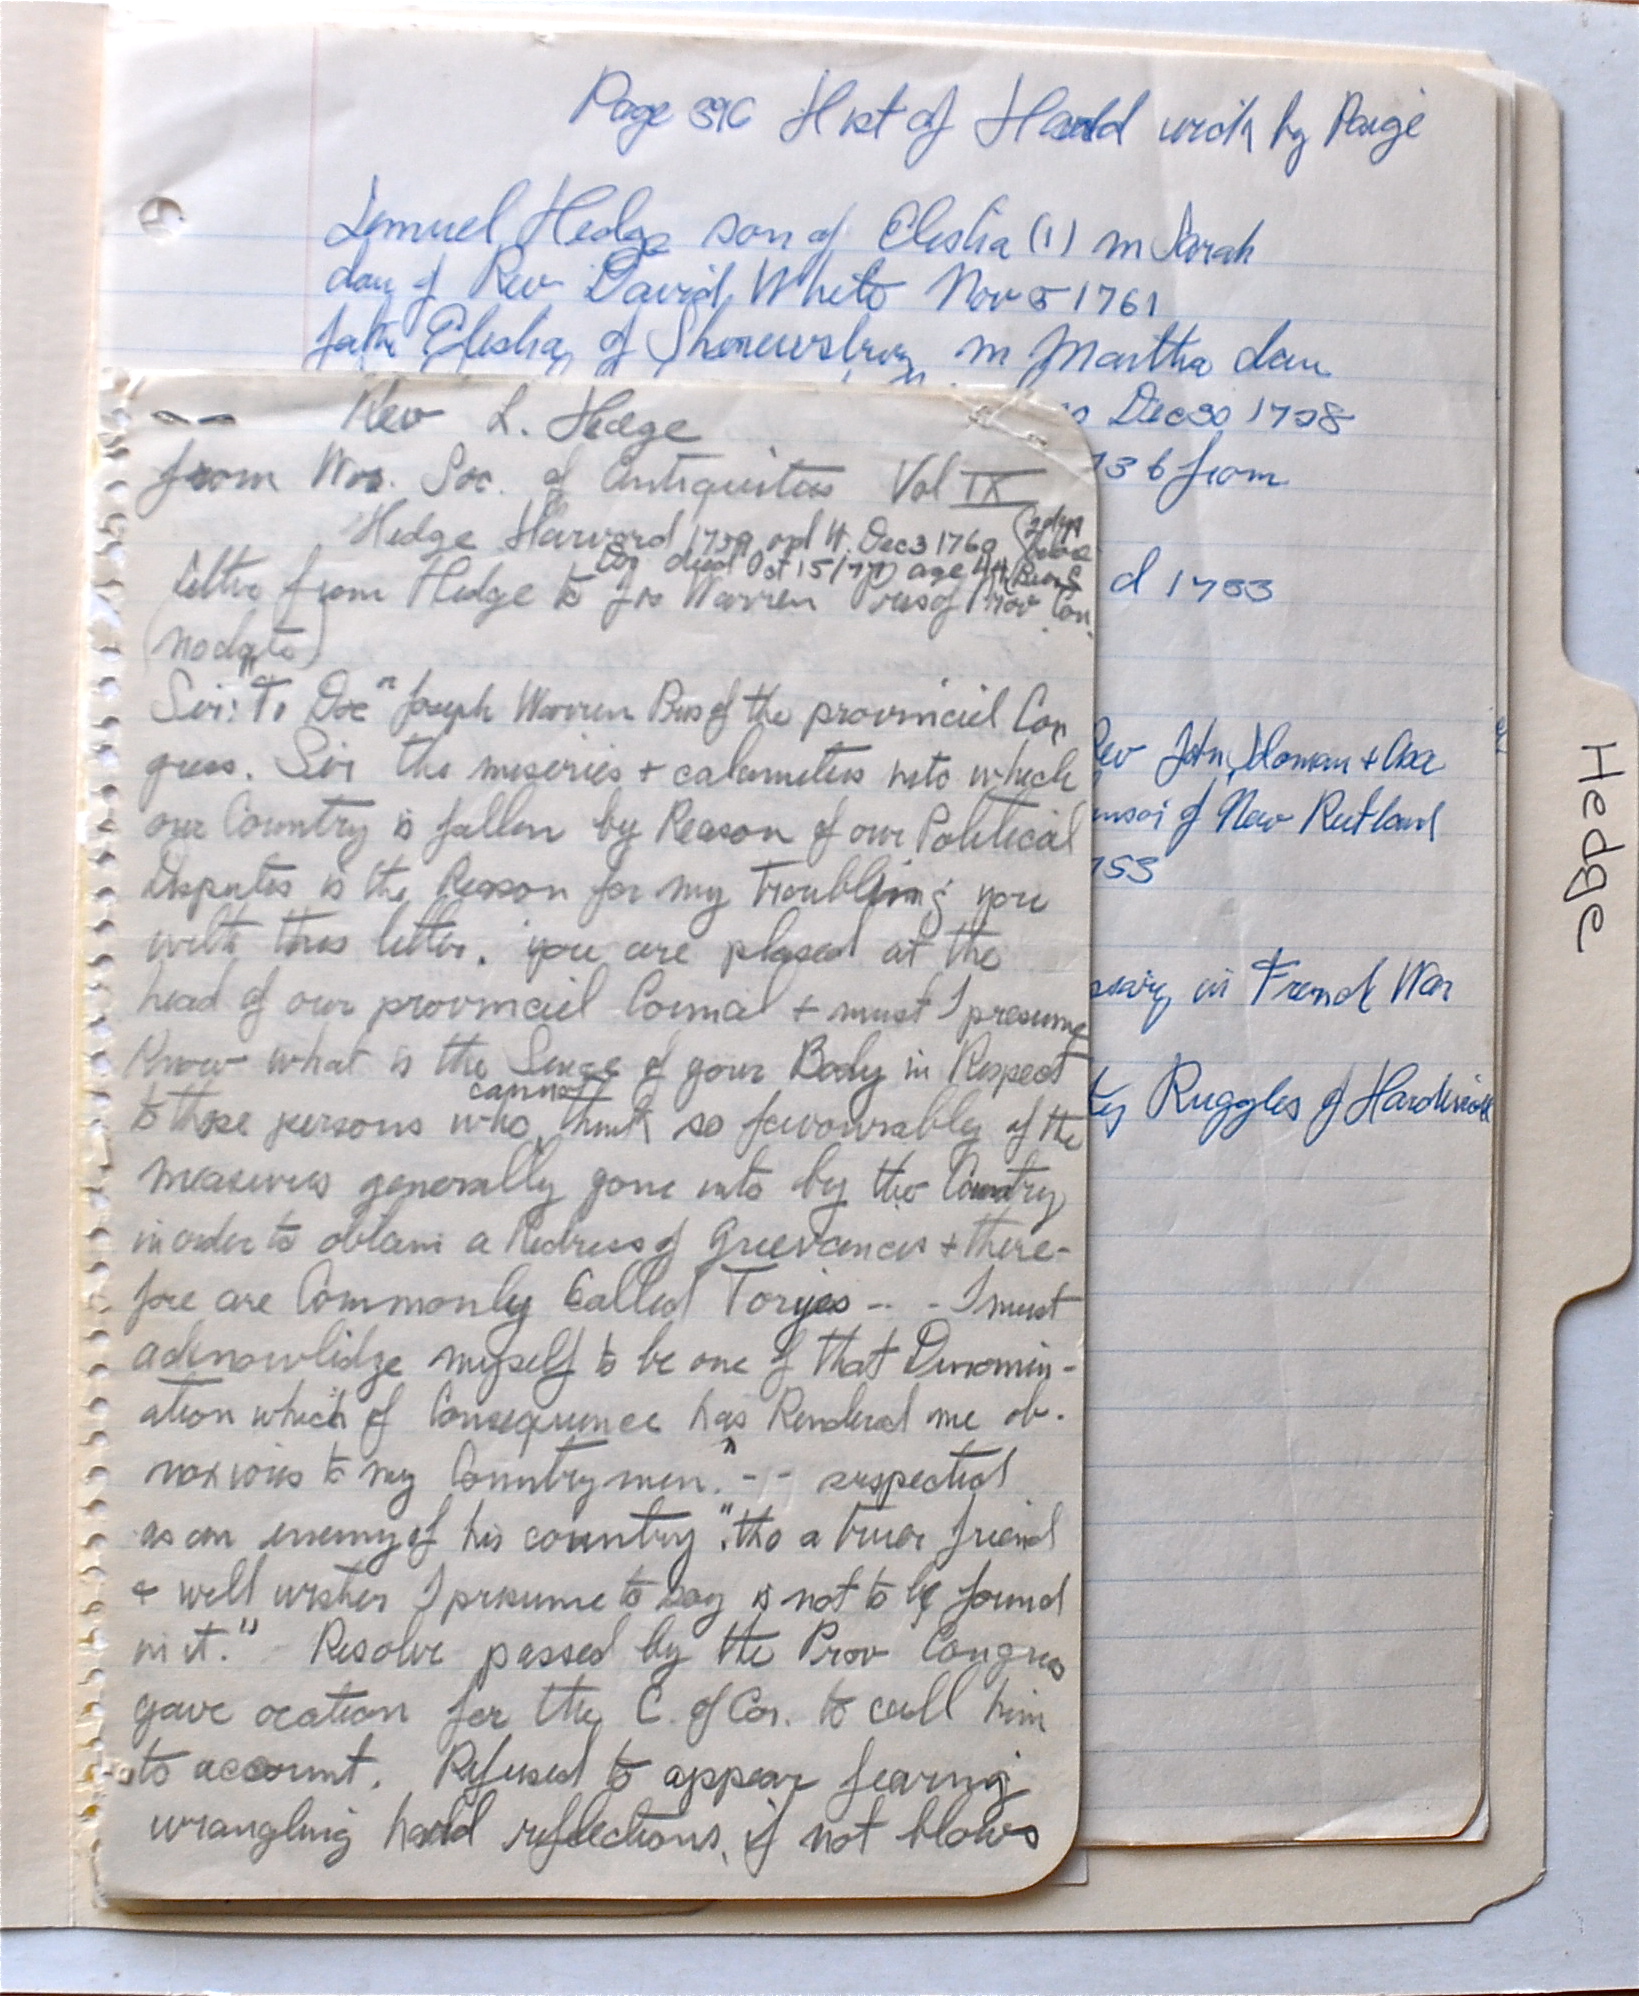 Page 396 Hist of Hard writ by Paige
Lemuel Hedge son of Elisha (1) m Sarah
dau of Rev David White Nov 5 1761
fath Elisha, of Shrewsbury m Martha dau
Dec 30 1728
136 from
d 1753
Rev John Homan + Asa
of New Rutland
753
in French War
ty Ruggles of Hardwick
Hedge
Rev L. Hedge
from Wor. Soc. of Antiquities Vol IX
Hedge Harvard 1759 opd W. Dec 3 1760
died Oct 15/1777 age 44
letter from Hedge to Jos Warren Pres of Prov Con.
(no date)
Sir: "To Doc" Joseph Warren Pres of the provinciel Con
gress. Sir the miseries + calamities into which
our Country is fallen by Reason of our Political
Disputes is the Reason for my troubling you
with this letter. you are plased at the
head of our provinciel Councial + must I presume
Know what is the Sence of your Body in Respect
to those persons who cannot think so favourabley of the
measures generally gone into by the Country
in order to obtain a Redress of Grievances + there-
fore are Commonly Called Toryes -- - I must
acknowlidge myself to be one of that Denomin-
ation which of Consequence has Rendered me ob-
noxious to my Countrymen." -- suspected
as an enemy of his country "tho a truer friend
+ well wisher I presume to say is not to be found
in it." - Resolve passed by the Prov Congress
gave ocation for the C. of Cor. to call him
to account. Refused to appear fearing
wrangling hard reflections, if not blows